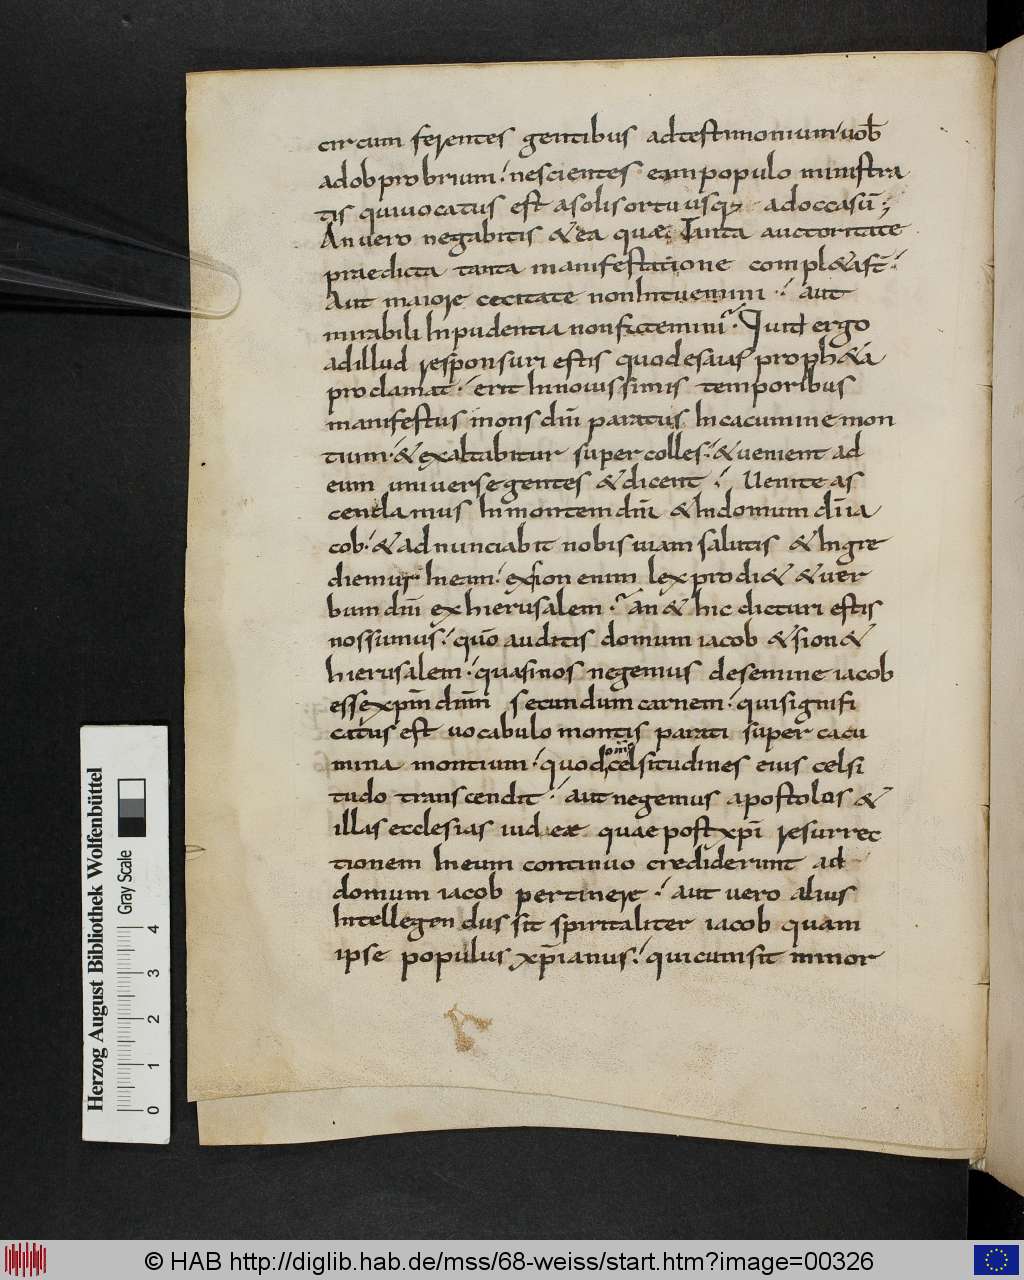 circum ferentes gentibus adtestimonium· uob̄
adobprobrium· nescientes eam populo ministra
tis quiuocatus est asolisortu usq; adoccasū;
An uero negabitis & ea quae Tanta auctoritate
praedicta tanta manifestatione compl&ast̄·
Aut maiore cecitate nonIntuemini · aut
mirabili Inpudentia nonfatemini · Quid ergo
adillud responsuri estis quodesaias proph&a
proclamat· erit Innouissimis temporibus
manifestus mons dn̄i paratus Incacumine mon
tium· & exaltabitur super colles· & uenient ad
eum uniuerse gentes & dicent · Uenite as
cendamus Inmontem dn̄i & Indomum dn̄i ia
cob· & adnunciabit nobis uiam salutis & Ingre
diemur Ineam· exsion enim lex prodi& & uer
bum dn̄i ex hierusalem · an & hic dicturi estis
nossumus· quō auditis domum iacob & sion &
hierusalem· quasinos negemus desemine iacob
essexpm̄ dnm̄ secundum carnem· quisignifi
catus est uocabulo montis parati super cacu
mina montium· quod celsitudines eius celsi
tudo transcendit· aut negemus apostolos &
illas ecclesias iudeae quae post xpi̅ resurrec
tionem Ineum continuo crediderunt ad
domum iacob pertinere · aut uero alius
Intellegendus sit spiritaliter iacob quam
ipse populus xp̄ianus· quicumsit minor
Herzog August Bibliothek Wolfenbüttel
Gray Scale
0 1 2 3 4
© HAB http://diglib.hab.de/mss/68-weiss/start.htm?image=00326